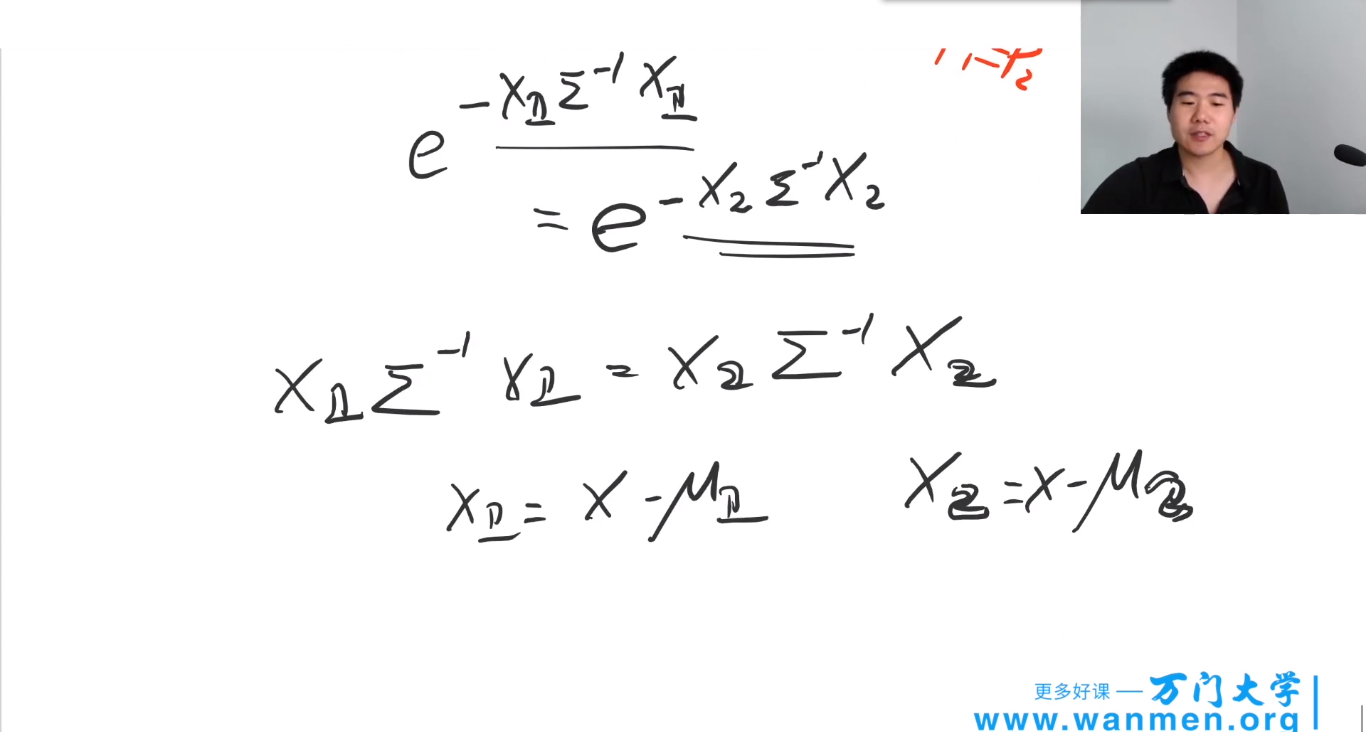 e^{-X_1 Σ^{-1} X_1}
= e^{-X_2 Σ^{-1} X_2}
X_1 Σ^{-1} X_1 = X_2 Σ^{-1} X_2
X_1 = X - μ_1 X_2 = X - μ_2
更多好课 — 万门大学
www.wanmen.org